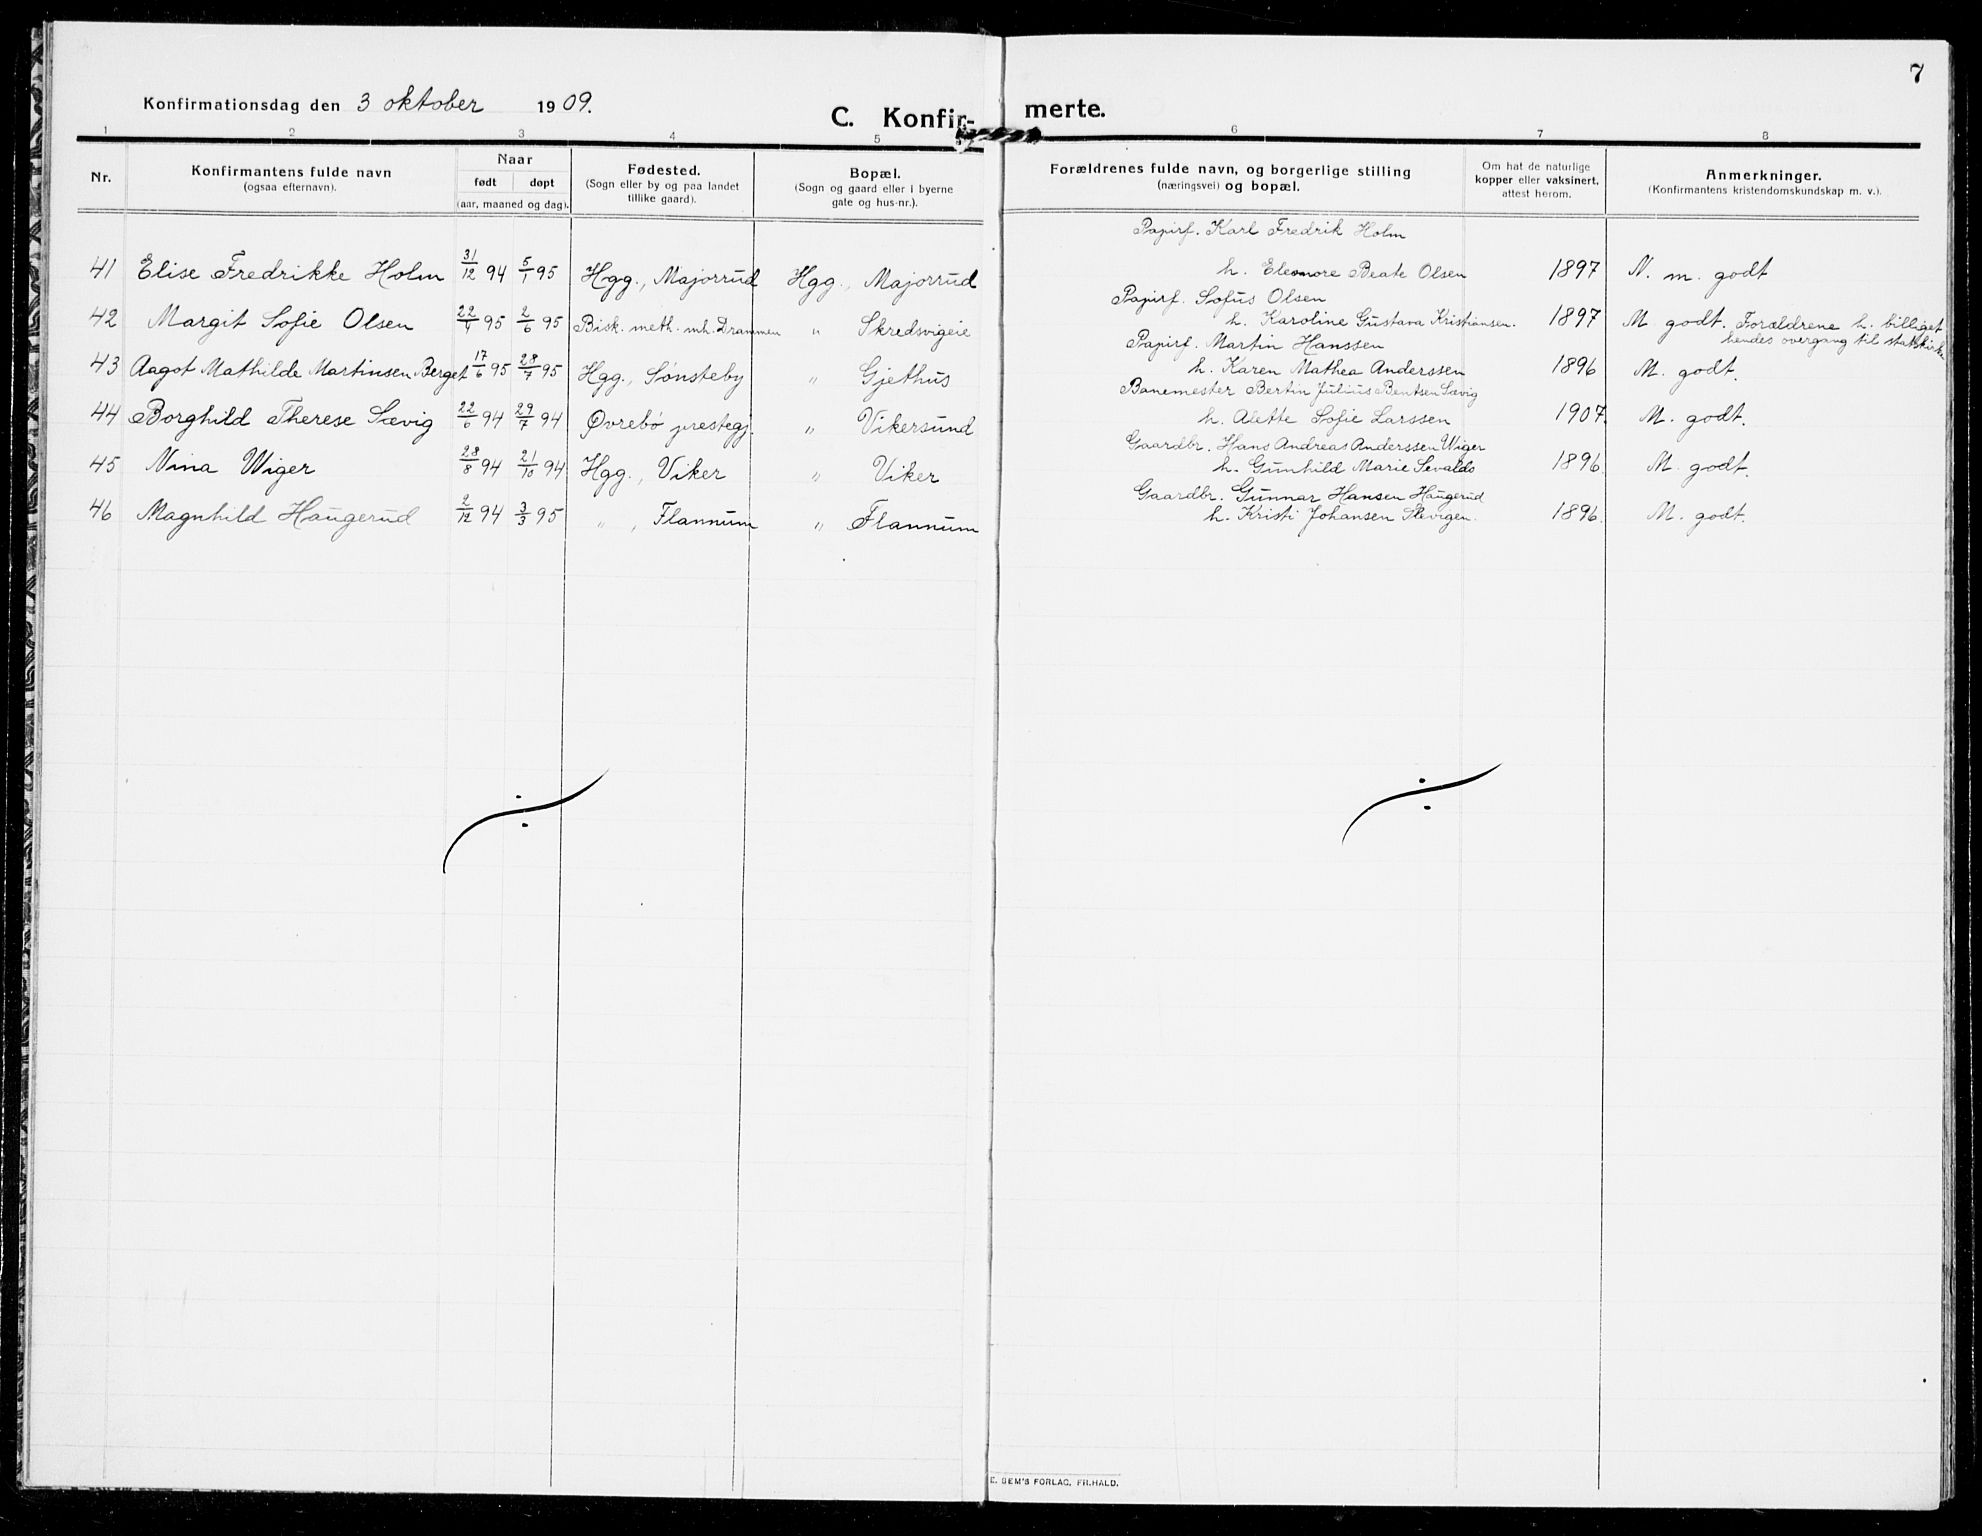 7
Konfirmationsdag den 3 oktober 1909.
C. Konfir-merte.
1 2 3 4 5 6 7 8
Nr.
Konfirmantens fulde navn
(ogsaa efternavn).
Naar
født døpt
(aar, maaned og dag).
Fødested.
(Sogn eller by og paa landet
tillike gaard).
Bopæl.
(Sogn og gaard eller i byerne
gate og hus-nr.).
Forældrenes fulde navn, og borgerlige stilling
(næringsvei) og bopæl.
Om hat de naturlige
kopper eller vaksinert,
attest herom.
Anmerkninger.
(Konfirmantens kristendomskundskap m. v.).
Papirf. Karl Fredrik Holm
41 Elise Fredrikke Holm 31/12 94 5/1 95 Hgg., Majorrud Hgg., Majorrud h. Eleonore Beate Olsen 1897 N. m. godt
Papirf. Sofus Olsen
42 Margit Sofie Olsen 22/4 95 2/6 95 Bisk. meth. mh. Drammen " Skredsvigeie h. Karoline Gustava Kristiansen. 1897 M. godt. Forældrene h. billiget
hendes overgang til statskirken
Papirf. Martin Hanssen
43 Aagot Mathilde Martinsen Berget 17/6 95 28/7 95 Hgg., Sønsteby " Gjethus h. Karen Mathea Anderssen 1896 M. godt.
Banemester Bertin Julius Bentsen Sævig
44 Borghild Therese Sævig 22/6 94 29/7 94 Øvrebø prestegj. " Vikersund h. Alette Sofie Larssen 1907. M. godt.
Gaardbr. Hans Andreas Anderssen Wiger
45 Nina Wiger 28/8 94 21/10 94 Hgg., Viker " Viker h. Gunhild Marie Sevalds 1896. M. godt.
Gaardbr. Gunnar Hansen Haugerud
46 Magnhild Haugerud 2/12 94 3/3 95 " , Flannum " Flannum h. Kristi Johansen Slevigen. 1896. M. godt.
E. SEM'S FORLAG, FR.HALD.